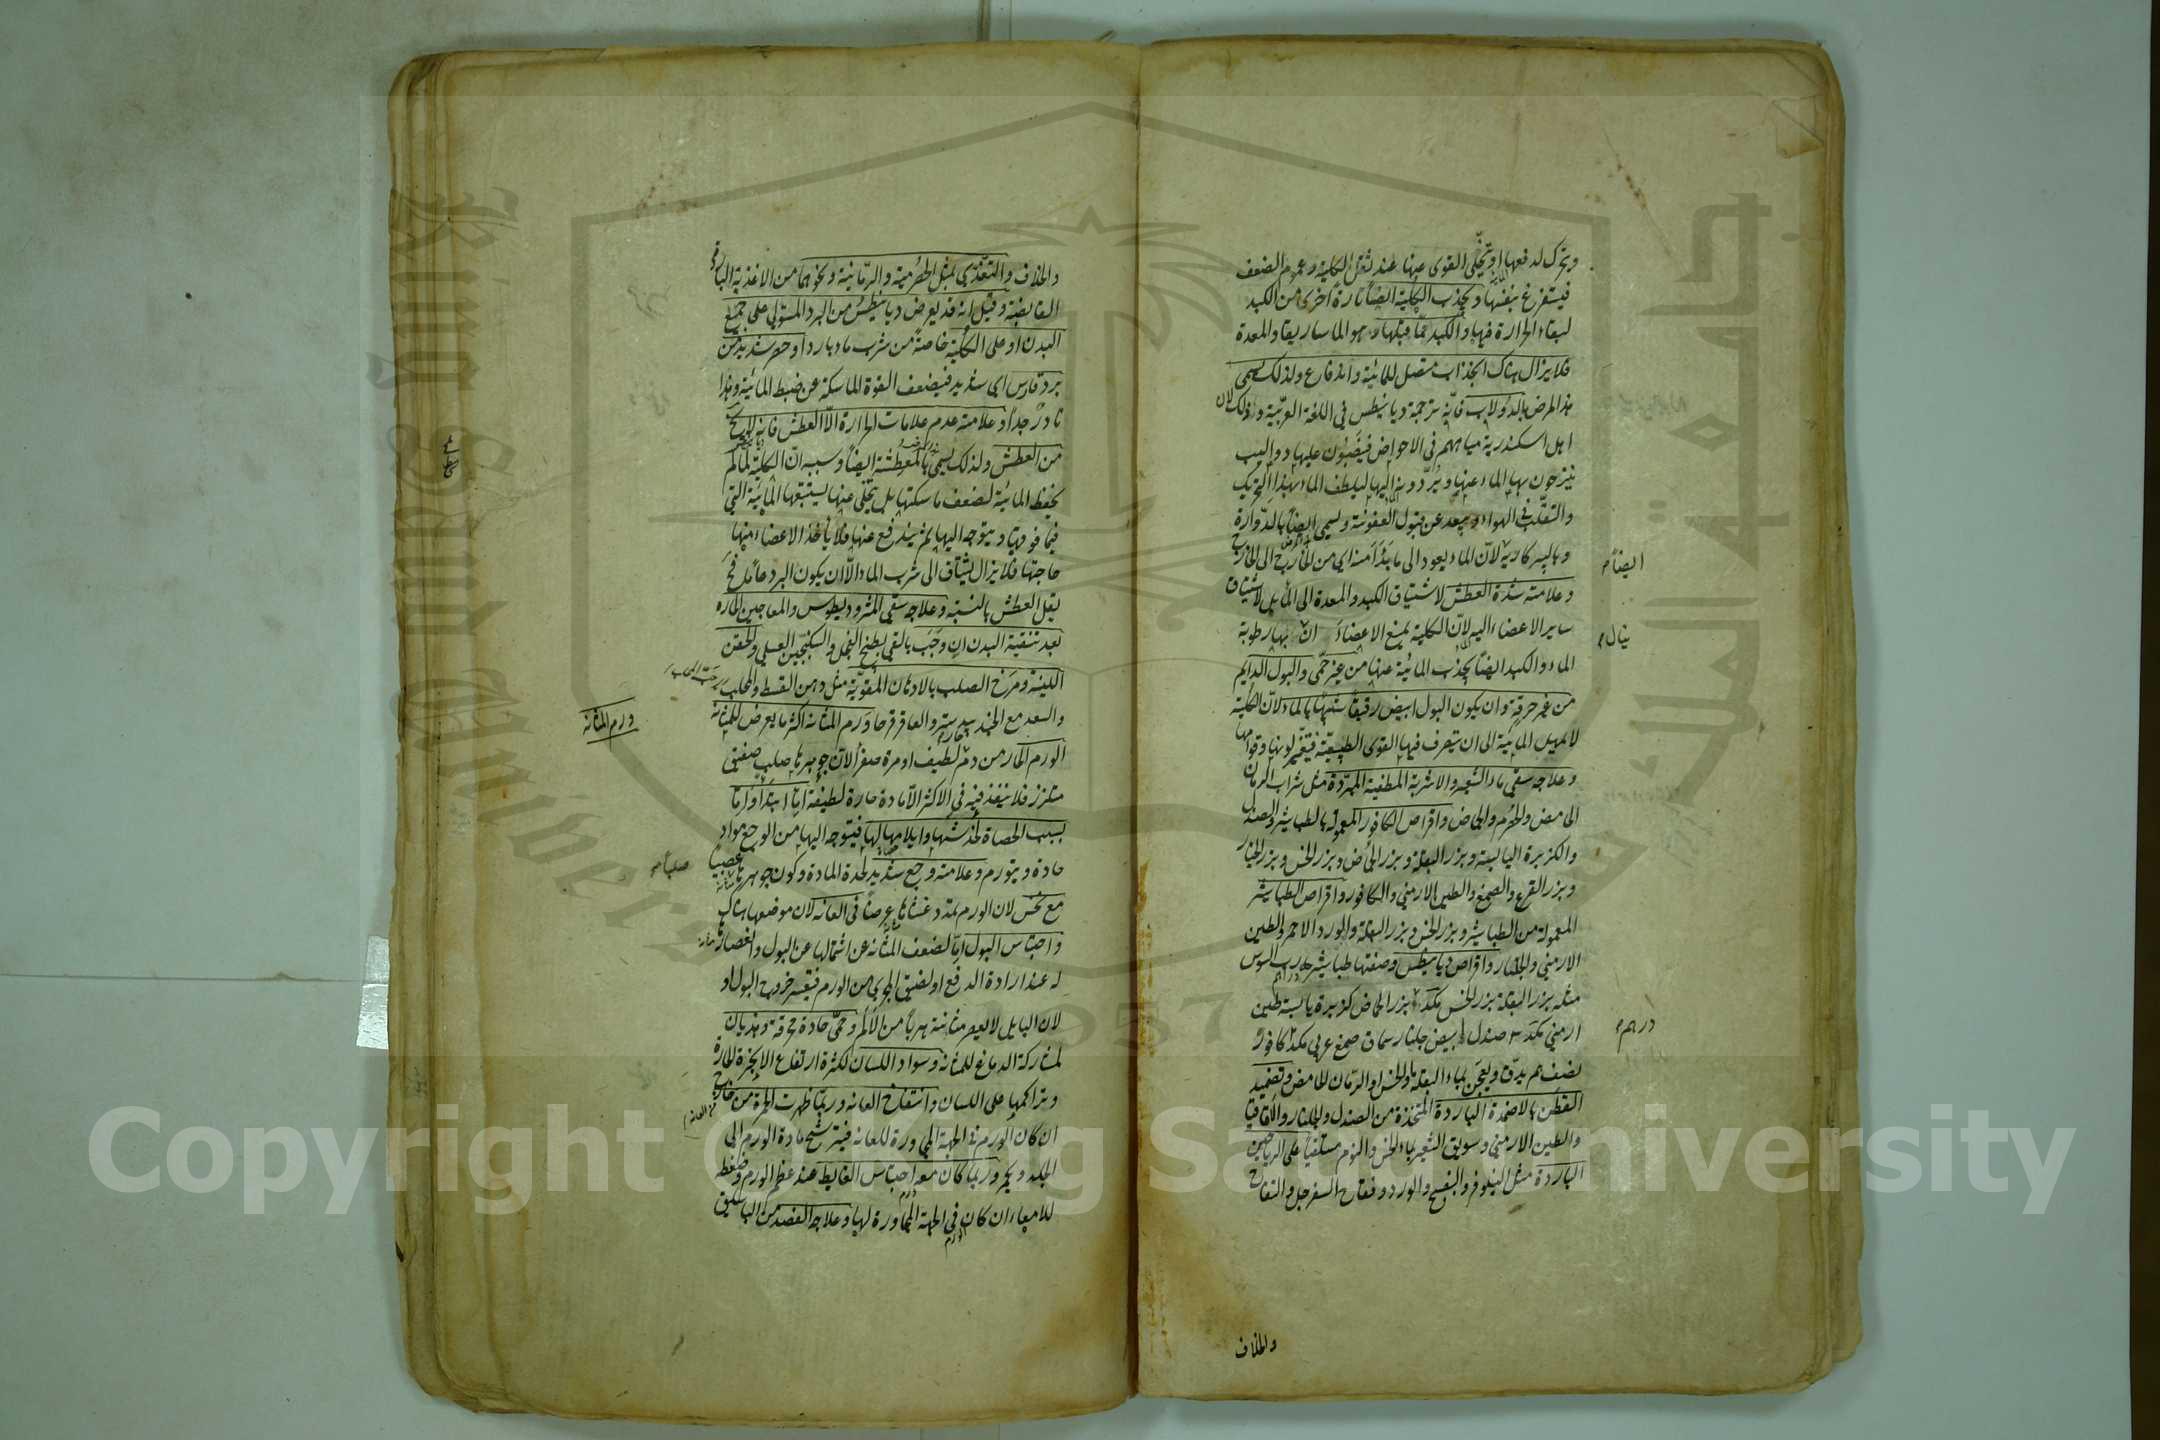 وتحرك لدفعها او تخلّى القوى عنها عند ثقل الكلية وعموم الضعف
فيستفرغ بنفسها وتجذب الكلية ايضاً تارة اخرى من الكبد
لبقاء الحرارة فيها والكبد ممّا قبلها وهو الماساريقا والمعدة
فلا يزال هناك انجذاب متصل للمائية واندفاع ولذلك يسمى
هذا المرض بالدولاب فانّه ترجمة ديانيطس في اللغة العربية وذلك لان
اهل اسكندرية مياههم في الاحواض فينصبون عليها دواليب
ينزحون بها الماء عنها ويردّونه اليها ليلطف الماء بهذا التحريك
والتقلّب في الهواء ويبعد عن قبول العفونة ويسمى ايضاً بالدوّارة
وبالبركارية لانّ الماء يعود الى ما بدأ منه اي من الخارج الى الخارج
ايضاً
وعلامته شدة العطش لاشتياق الكبد والمعدة الى المائ لاشتياق
ساير الاعضاء اليه لانّ الكلية يمنع الاعضاء ان بها رطوبة
ينال
الماء والكبد ايضاً يجذب المائية عنها من غير حمّى والبول الدايم
من غير حرقة وان يكون البول ابيض رقيقاً شبيهاً بالماء لانّ الكلية
لا تمهل المائية الى ان يتصرف فيها القوى الطبيعيّة فيتغير لونها وقوامها
وعلاجه سقي ماء الشعير والاشربة المطفية المبرّدة مثل شراب الرمان
الحامض والحصرم والحماض واقراص الكافور المعمولة بالطباشير والصندل
والكزبرة اليابسة وبزر البقلة وبزر الحماض وبزر الخس وبزر الخيار
وبزر القرع والصمغ والطين الارمني والكافور واقراص الطباشير
المعمولة من الطباشير وبزر الخس وبزر البقلة والورد الاحمر والطين
الارمني والجلنار واقراص ديانيطس وصفتها طباشير رب السوس
مثله بزر البقلة بزر الخس بزر الحماض كزبرة يابسة طين
درهم
ارمني صندل ابيض جلنار سماق صمغ عربي كافور
نصف يدق ويعجن بماء البقلة والخس او الرمان الحامض وتضميد
القطن بالاضمدة الباردة المتخذة من الصندل والجلنار والاقاقيا
والطين الارمني وسويق الشعير بماء الخس والنوم مستلقياً على الرياحين
الباردة مثل النيلوفر والبنفسج والورد وفقاح السفرجل والتفاح
والخلاف
والخلاف والتغذّي بمثل الحصرمية والرمّانية ونحوهما من الاغذية الباردة
القابضة وقيل انه قد يعرض ديانيطس من البرد المستولي على جميع
البدن او على الكلية خاصةً من شرب ماء بارد او حصر شديد من
برد قارس اي شديد فيضعف القوة الماسكة عن ضبط المائية وهذا
نادر جداً وعلامته عدم علامات الحرارة الّا العطش فانه لابد
من العطش ولذلك يسمى بالمعطشة ايضاً وسببه انّ الكلية لمّا لم
يحفظ المائية لضعف ماسكتها بل يتخلّى عنها يستتبعها المائية التي
فيما فوقها ويتوجه اليها ثم يندفع عنها فلا يأخذ الاعضاء منها
حاجتها فلا يزال يشتاق الى شرب الماء الّا ان يكون البرد عاماً فح
يقل العطش بالنسبة وعلاجه سقي المثروديطوس والمعاجين الحارة
بعد تنقية البدن ان وجب بالقي بطبيخ الفجل والسكنجبين العسلي والحقن
اللينة ومرخ الصلب بالادهان المقوّية مثل دهن القسط والمحلب
والسعد مع الجندبيدستر والعاقرقرحا ورم المثانة اكثر ما يعرض للمثانة
ورم المثانة
الورم الحار من دم لطيف او مرة صفرا لانّ جوهرها صلب صفيق
متلزز فلا ينفذ فيه في الاكثر الّا مادة حارة لطيفة امّا ابتداءً وامّا
بسبب الحصاة لخدشها وايلامها لها فيتوجه اليها من الوجع مواد
حادة ويتورم وعلامته وجع شديد لحدة المادة وكون جوهرها عصبيا
صلباً
مع نخس لان الورم يمدد غشاءها عرضاً في العانة لان موضعها هناك
واحتباس البول امّا لضعف المثانة عن اشتمالها عن البول وانعصارها
له عند ارادة الدفع او لضيق المجرى من الورم فيعسر خروج البول او
لان البايل لا يعصر مثانته هرباً من الالم وحمّى حادة محرقة وهذيان
لمشاركة الدماغ للمثانة وسواد اللسان لكثرة ارتفاع الابخرة الحارة
وتراكمها على اللسان وانتفاخ العانة وربّما ظهرت الحمرة من خارج
ان كان الورم في الجهة المجاورة للعانة فيترشح مادة الورم الى
الجلد ويحمر وربما كان معه احتباس الغايط عند عظم الورم وضغطه
للامعاء ان كان في الجهة المجاورة لها وعلاجه الفصد من الباسليق
Copyright © King Saud University
King Saud University
جامعة الملك سعود
1957